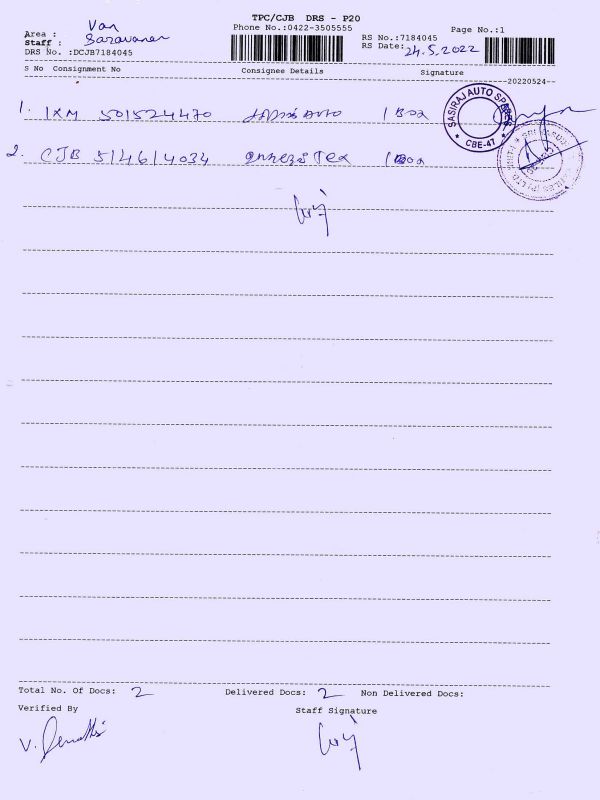 TPC/CJB DRS - P20
Phone No.:0422-3505555
Page No.:1
Area : Van
Staff : Saravanan
RS No.:7184045
DRS No. :DCJB7184045
RS Date: 24.5.2022
S No Consignment No Consignee Details Signature
--20220524--
1. IXM 501524470 AUTO 1 Box
SASIRAJ AUTO SPARES
* CBE-47 *
2. CJB 514614034 Tex 1 Box
Total No. Of Docs: 2 Delivered Docs: 2 Non Delivered Docs:
Verified By Staff Signature